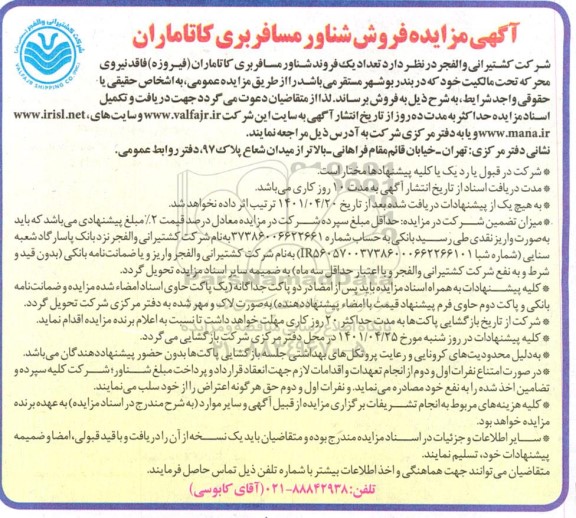 آگهی مزایده فروش شناور مسافربری کاتاماران
شرکت کشتیرانی والفجر
VALFAJR SHIPPING CO.
شرکت کشتیرانی والفجر در نظر دارد تعداد یک فروند شناور مسافربری کاتاماران (فیروزه) فاقد نیروی
محرکه تحت مالکیت خود که در بندر بوشهر مستقر می‌باشد را از طریق مزایده عمومی، به اشخاص حقیقی یا
حقوقی واجد شرایط، به شرح ذیل به فروش برساند. لذا از متقاضیان دعوت می‌گردد جهت دریافت و تکمیل
اسناد مزایده حداکثر به مدت ده روز از تاریخ انتشار آگهی به سایت این شرکت www.valfajr.ir و سایت‌های www.irisl.net،
www.mana.ir و یا به دفتر مرکزی شرکت به آدرس ذیل مراجعه نمایند.
نشانی دفتر مرکزی: تهران - خیابان قائم مقام فراهانی - بالاتر از میدان شعاع پلاک ۹۷، دفتر روابط عمومی.
* شرکت در قبول یا رد یک یا کلیه پیشنهادها مختار است.
* مدت دریافت اسناد از تاریخ انتشار آگهی به مدت ۱۰ روز کاری می‌باشد.
* به هیچ یک از پیشنهادات دریافت شده بعد از تاریخ ۱۴۰۱/۰۴/۲۰ ترتیب اثر داده نخواهد شد.
* میزان تضمین شرکت در مزایده: حداقل مبلغ سپرده شرکت در مزایده معادل درصد قیمت ۲٪ مبلغ پیشنهادی می‌باشد که باید
به صورت واریز نقدی طی رسید بانکی به حساب شماره ۳۷۳۸۶۰۰۶۶۲۲۶۶۱ به نام شرکت کشتیرانی والفجر نزد بانک پاسارگاد شعبه
سنایی (شماره شبا IR۵۶۰۵۷۰۰۳۷۳۸۶۰۰۰۶۶۲۲۶۶۱۰۱) به نام شرکت کشتیرانی والفجر واریز و یا ضمانت‌نامه بانکی (بدون قید و
شرط و به نفع شرکت کشتیرانی والفجر و با اعتبار حداقل سه ماه) به ضمیمه سایر اسناد مزایده تحویل گردد.
* کلیه پیشنهادات به همراه اسناد مزایده بایستی پس از امضا در دو پاکت جداگانه (یک پاکت حاوی اسناد امضاء شده مزایده و ضمانت‌نامه
بانکی و پاکت دوم حاوی فرم پیشنهاد قیمت با امضاء پیشنهاددهنده) به صورت لاک و مهر شده به دفتر مرکزی شرکت تحویل گردد.
* شرکت از تاریخ بازگشایی پاکت‌ها به مدت حداکثر ۲۰ روز کاری مهلت خواهد داشت تا نسبت به اعلام برنده مزایده اقدام نماید.
* کلیه پیشنهادات در روز شنبه مورخ ۱۴۰۱/۰۴/۲۵ در محل دفتر مرکزی شرکت بازگشایی می‌گردد.
* به دلیل محدودیت‌های کرونایی و رعایت پروتکل‌های بهداشتی جلسه بازگشایی پاکت‌ها بدون حضور پیشنهاددهندگان می‌باشد.
* در صورت امتناع نفرات اول و دوم از انجام تعهدات و اقدامات لازم جهت انعقاد قرارداد و پرداخت مبلغ شناور؛ شرکت کلیه سپرده و
تضامین اخذ شده را به نفع خود مصادره می‌نماید. و نفرات اول و دوم حق هرگونه اعتراض را از خود سلب می‌نمایند.
* کلیه هزینه‌های مربوط به انجام تشریفات برگزاری مزایده از قبیل آگهی و سایر موارد (به شرح مندرج در اسناد مزایده) به عهده برنده
مزایده خواهد بود.
* سایر اطلاعات و جزئیات در اسناد مزایده مندرج بوده و متقاضیان باید یک نسخه از آن را دریافت و با قید قبولی، امضا و ضمیمه
پیشنهادات خود، تسلیم نمایند.
متقاضیان می‌توانند جهت هماهنگی و اخذ اطلاعات بیشتر با شماره تلفن ذیل تماس حاصل فرمایند.
تلفن: ۸۸۸۴۲۹۳۸-۰۲۱ (آقای کابوسی)